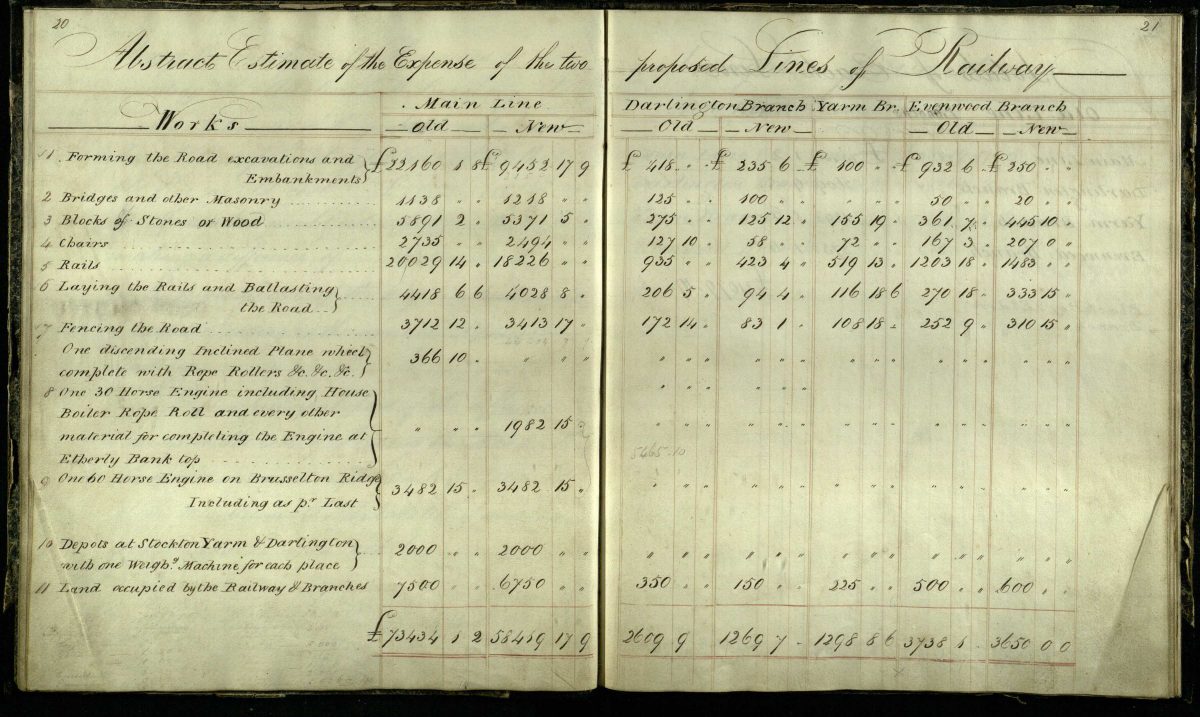 20
21
Abstract Estimate of the Expense of the two proposed Lines of Railway
Main Line Darlington Branch Yarm Br. Evenwood Branch
Works Old New Old New Old New
1 Forming the Road excavations and
Embankments £22160 1 8 £9452 17 9 £418 " " £235 6 " £100 " " £932 6 " £250 " "
2 Bridges and other Masonry 1138 " " 1218 " " 125 " " 100 " " " " " 50 " " 20 " "
3 Blocks of Stones or Wood 5891 2 " 5371 5 " 275 " " 125 12 " 155 19 " 361 7 " 445 10 "
4 Chairs 2735 " " 2494 " " 127 10 " 58 " " 72 " " 167 3 " 207 0 "
5 Rails 20029 14 " 18226 " " 935 " " 423 4 " 519 13 " 1203 18 " 1483 " "
6 Laying the Rails and Ballasting
the Road 4418 6 6 4028 8 " 206 5 " 94 4 " 116 18 6 270 18 " 333 15 "
7 Fencing the Road 3712 12 " 3413 17 " 172 14 " 83 1 " 108 18 " 252 9 " 310 15 "
One discending Inclined Plane wheel
complete with Rope Rollers &c. &c. &c. 366 10 " " " " " " " " " " " " " " " " " " "
8 One 30 Horse Engine including House
Boiler Rope Roll and every other
material for completing the Engine at
Etherly Bank top " " " 1982 15 " " " " " " " " " " " " " " " "
5465 10
9 One 60 Horse Engine on Brusselton Ridge
Including as pr. Last 3482 15 " 3482 15 " " " " " " " " " " " " " " " "
10 Depots at Stockton Yarm & Darlington
with one Weighg. Machine for each place 2000 " " 2000 " " " " " " " " " " " " " " " " "
11 Land occupied by the Railway & Branches 7500 " " 6750 " " 350 " " 150 " " 225 " " 500 " " 600 " "
£73434 1 2 58419 17 9 2609 9 1269 7 " 1298 8 6 3738 1 " 3650 0 0